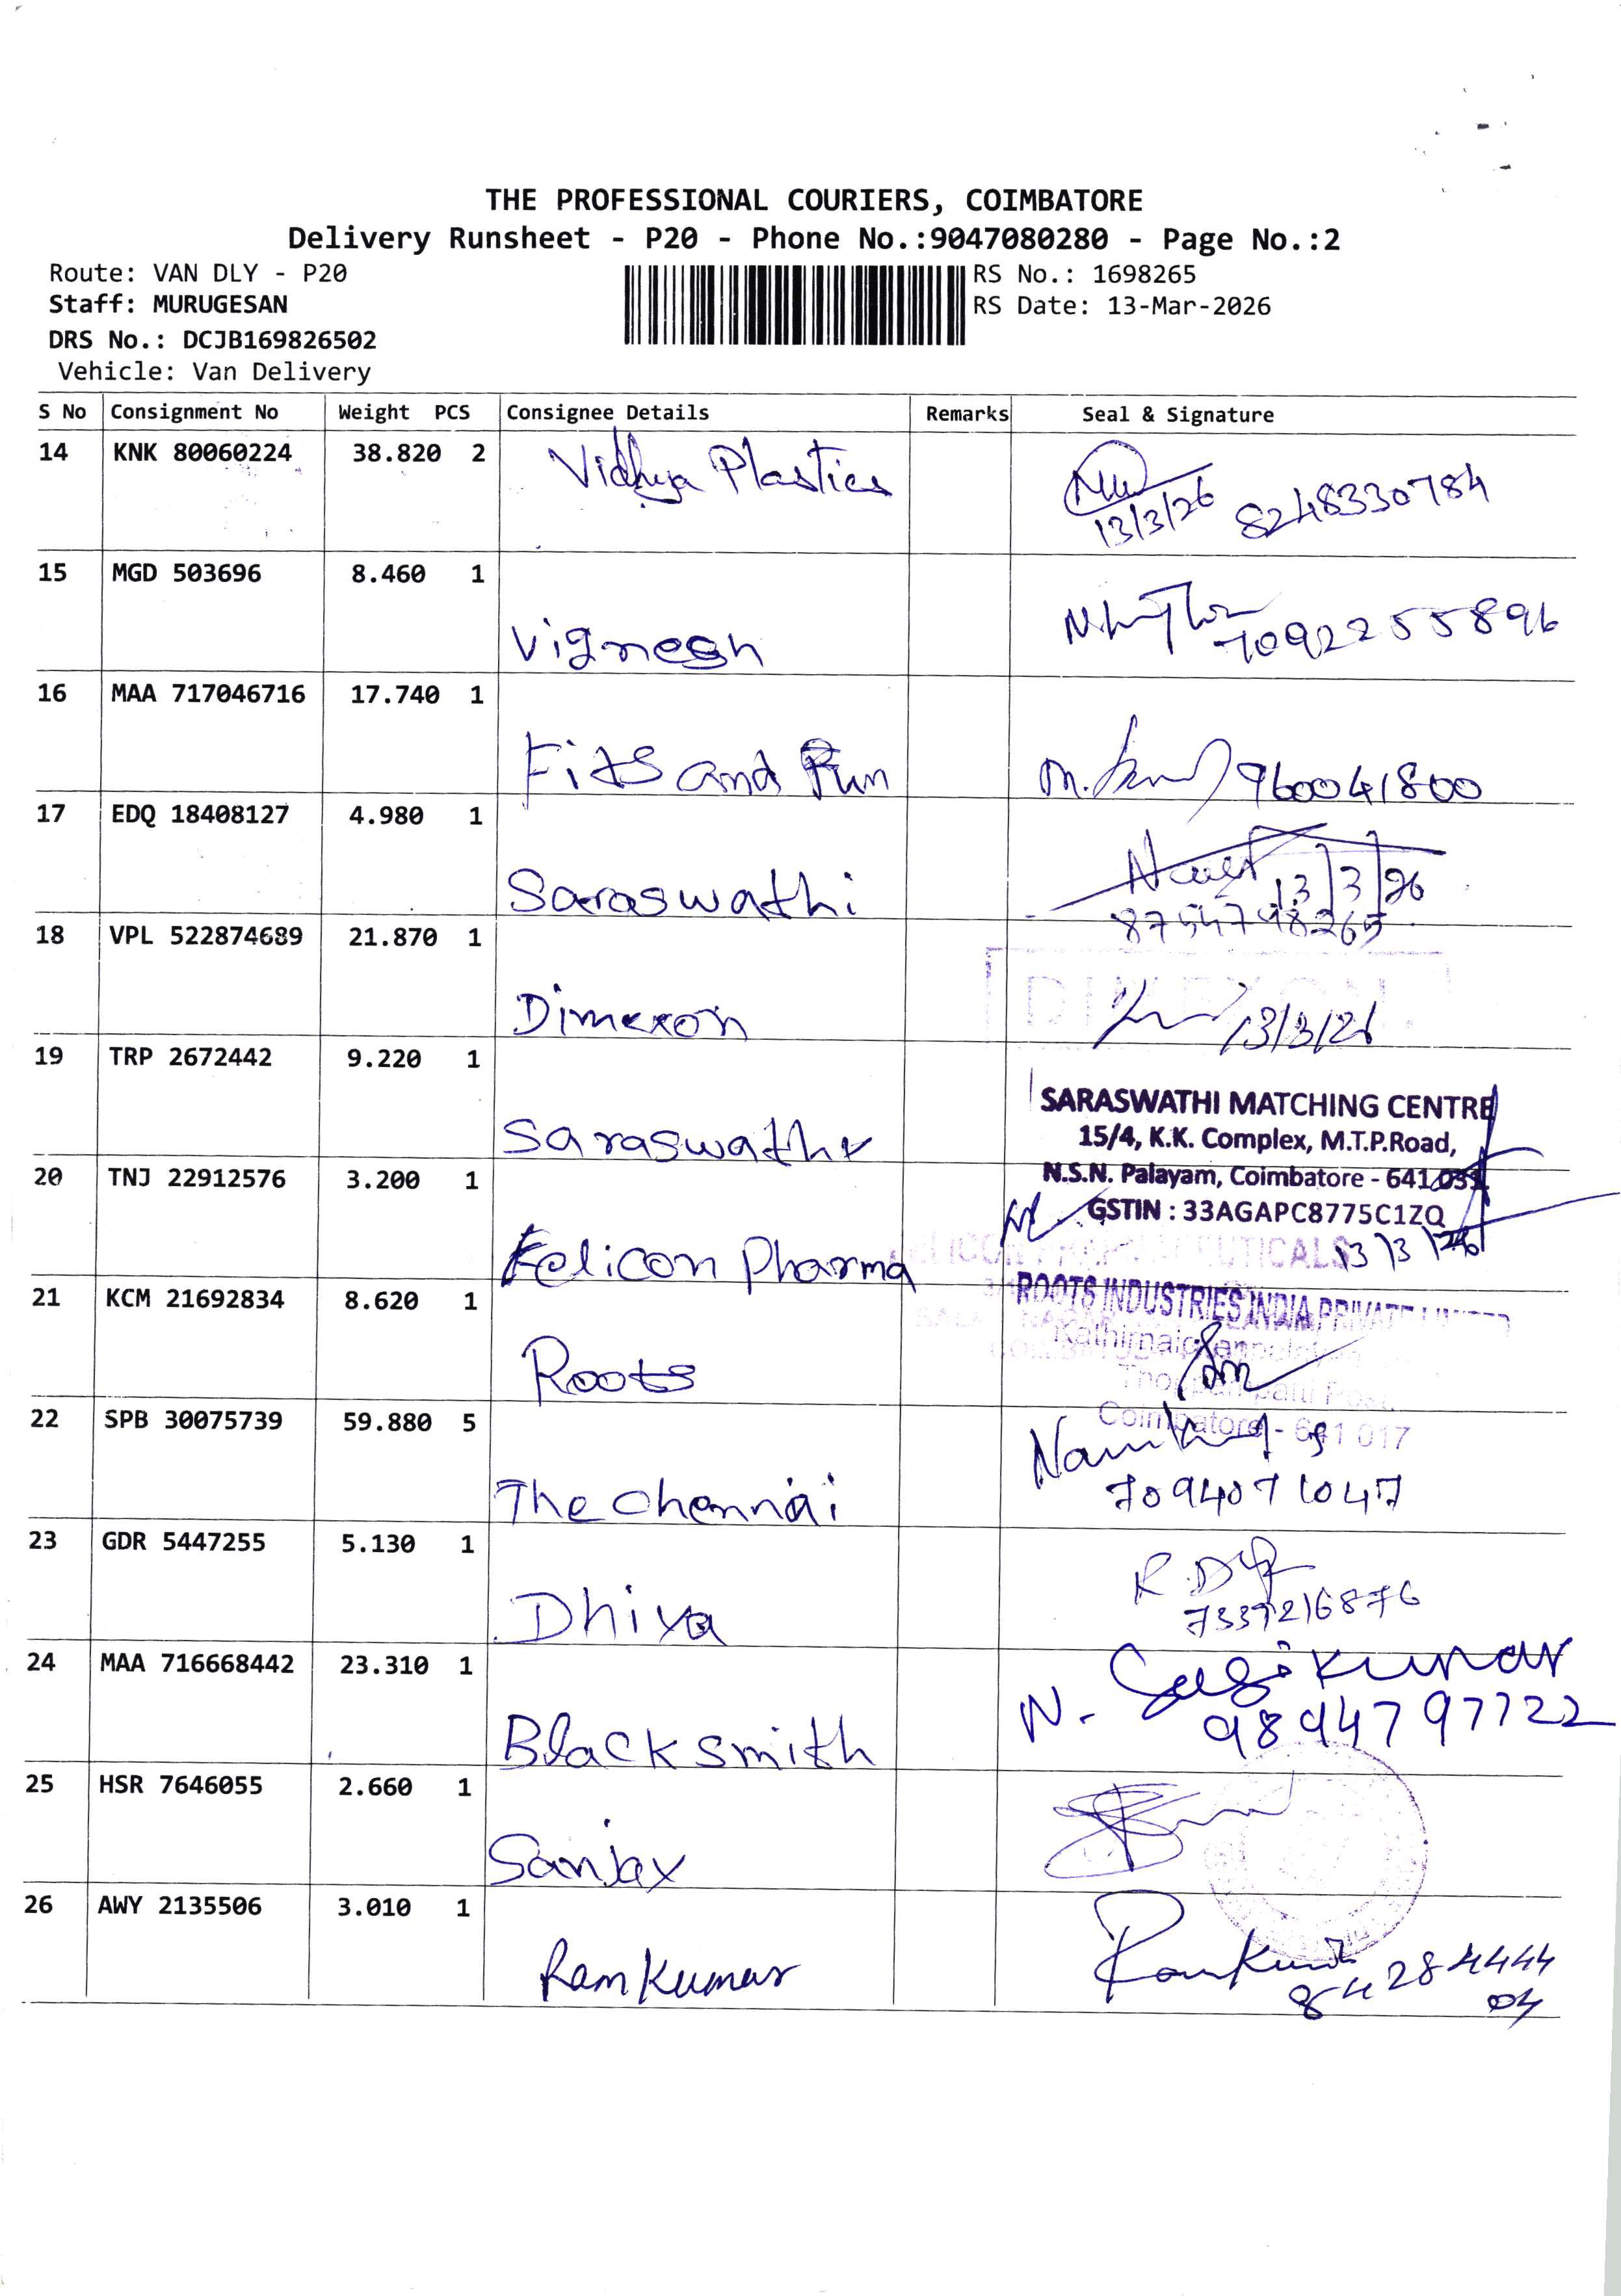 THE PROFESSIONAL COURIERS, COIMBATORE
Delivery Runsheet - P20 - Phone No.:9047080280 - Page No.:2
Route: VAN DLY - P20
RS No.: 1698265
Staff: MURUGESAN
RS Date: 13-Mar-2026
DRS No.: DCJB169826502
Vehicle: Van Delivery
S No Consignment No Weight PCS Consignee Details Remarks Seal & Signature
14 KNK 80060224 38.820 2 Vidhya Plastics
13/3/26 8248330784
15 MGD 503696 8.460 1
Vignesh 7092255896
16 MAA 717046716 17.740 1
Fits and Run M. 960041800
17 EDQ 18408127 4.980 1
Saraswathi 13/3/26
8754748265
18 VPL 522874689 21.870 1
DIMEXON
Dimexon 13/3/26
19 TRP 2672442 9.220 1
SARASWATHI MATCHING CENTRE
15/4, K.K. Complex, M.T.P.Road,
Saraswathi
N.S.N. Palayam, Coimbatore - 641 031.
20 TNJ 22912576 3.200 1
GSTIN : 33AGAPC8775C1ZQ
Felicon Pharma 13/3/26
21 KCM 21692834 8.620 1
ROOTS INDUSTRIES INDIA PRIVATE LIMITED
Roots
22 SPB 30075739 59.880 5
Coimbatore - 641 017
The Chennai 7094071047
23 GDR 5447255 5.130 1
R.
Dhiya 7337216876
24 MAA 716668442 23.310 1
N.
Blacksmith 9894797722
25 HSR 7646055 2.660 1
Sanjay
26 AWY 2135506 3.010 1
Ramkumar Ramkumar
84284444
04